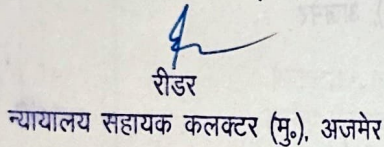 रीडर
न्यायालय सहायक कलक्टर (मु०), अजमेर